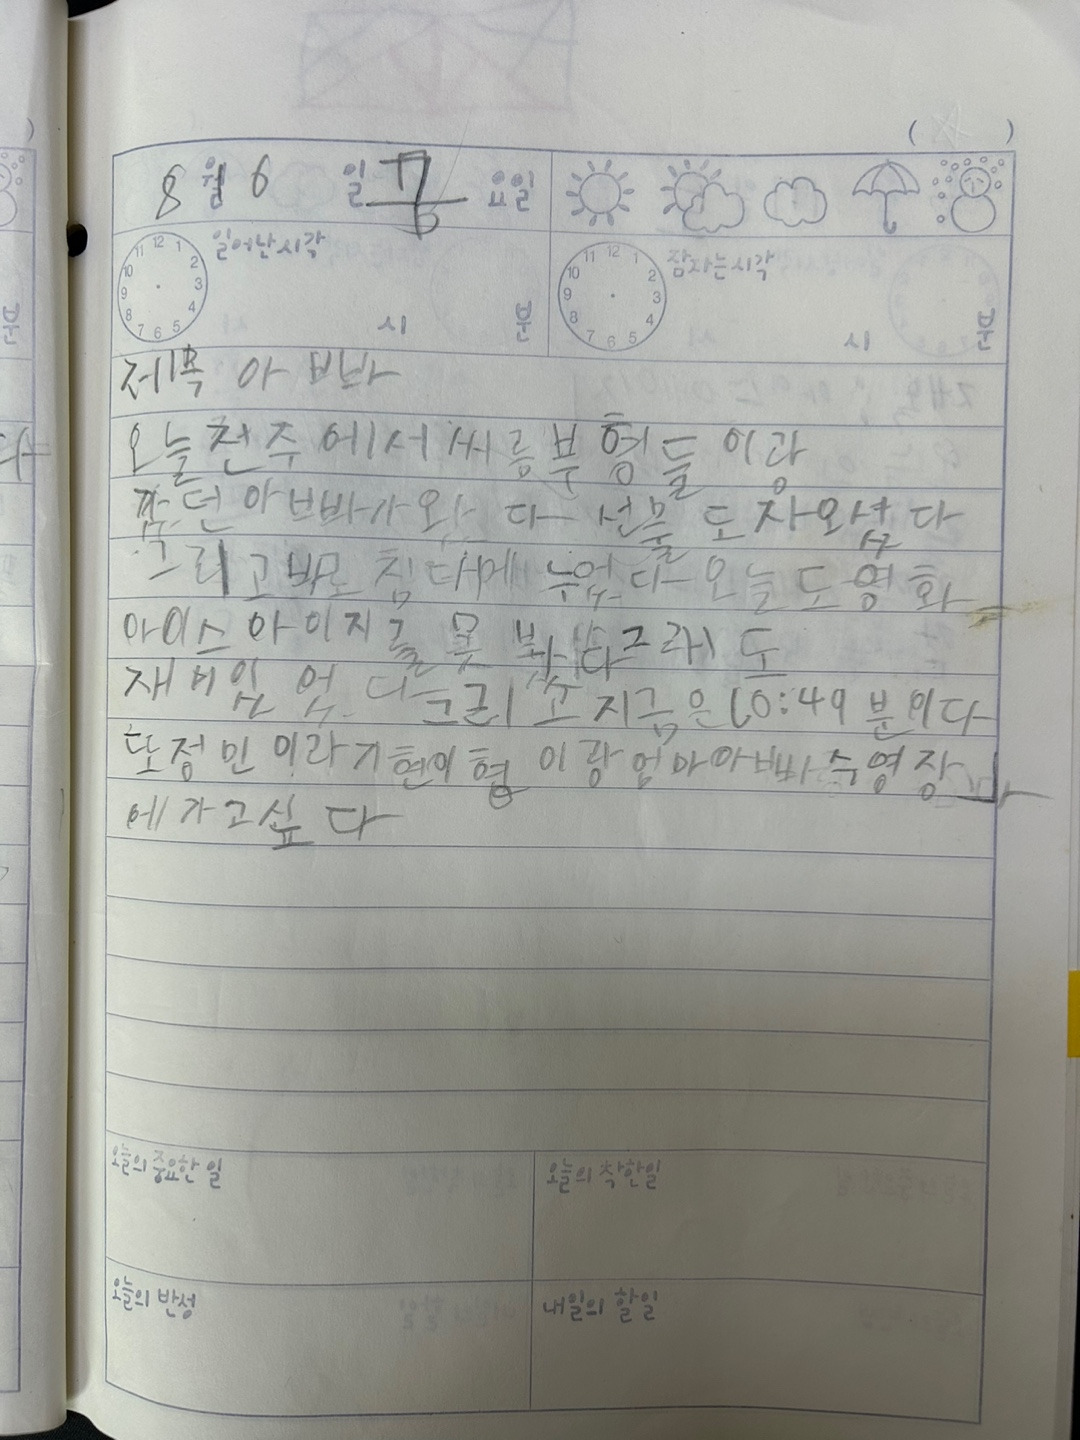 ( )
8월 6 일 요일
일어난시각 잠자는시각
11 12 1 10 2 9 3 8 4 7 6 5 11 12 1 10 2 9 3 8 4 7 6 5
시 분 시 분
제목 아빠
오늘 전주에서 씨름부 형들이랑
아빠가 왔다 선물도 사왔다
그리고 바로 침대에 누웠다 오늘도 영화
아이스 아이지를 못 봤다 그래도
재미있었다 그리고 지금은 10:49분이다
또 정민이라 기현이형이랑 엄마아빠 수영장
에 가고싶다
오늘의 중요한 일 오늘의 착한일
오늘의 반성 내일의 할일